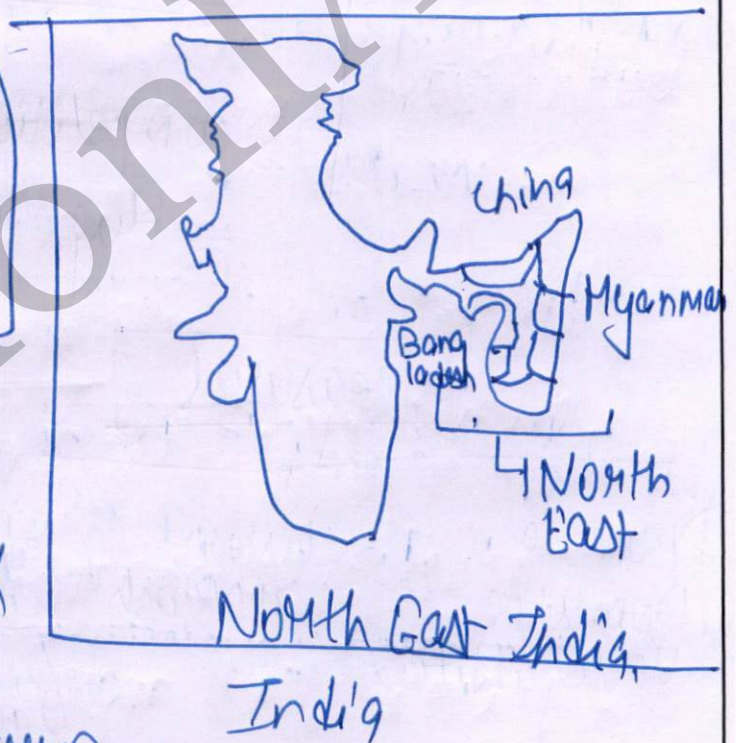 China
Myanmar
Bang
ladesh
North
East
North East India
India